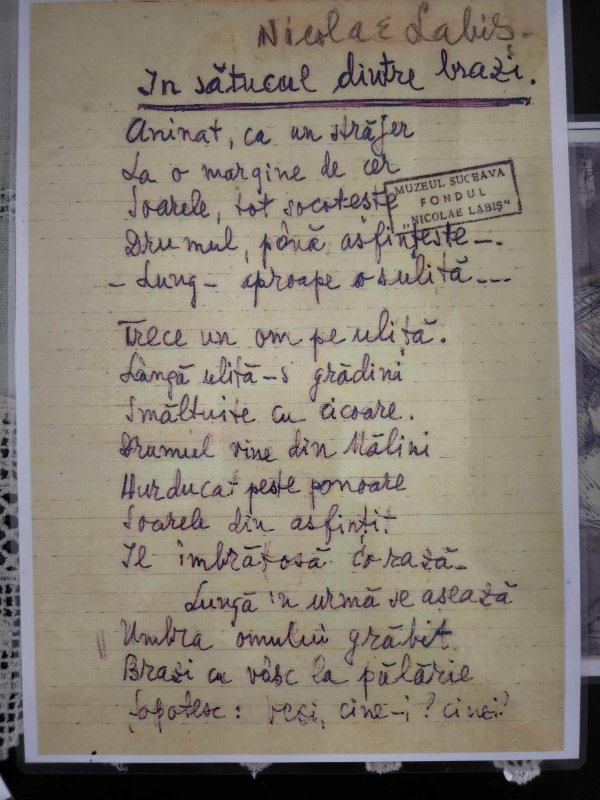 Nicolae Labiș
In sătucul dintre brazi.
Aninat, ca un străjer
La o margine de cer
Soarele, tot socotește
MUZEUL SUCEAVA
FONDUL
„NICOLAE LABIȘ“
Drumul, până asfințește—.
- Lung - aproape o suliță ---
Trece un om pe uliță.
Lângă uliță-s grădini
Smălțuite cu cicoare.
Drumul vine din Mălini
Hurducat peste ponoare
Soarele din asfințit.
Il îmbrățosă c'o rază-
Lungă 'n urmă se asează
Umbra omului grăbit
Brazi cu vâsc la pălărie
Șopotesc: Vezi, cine-i? cinei?